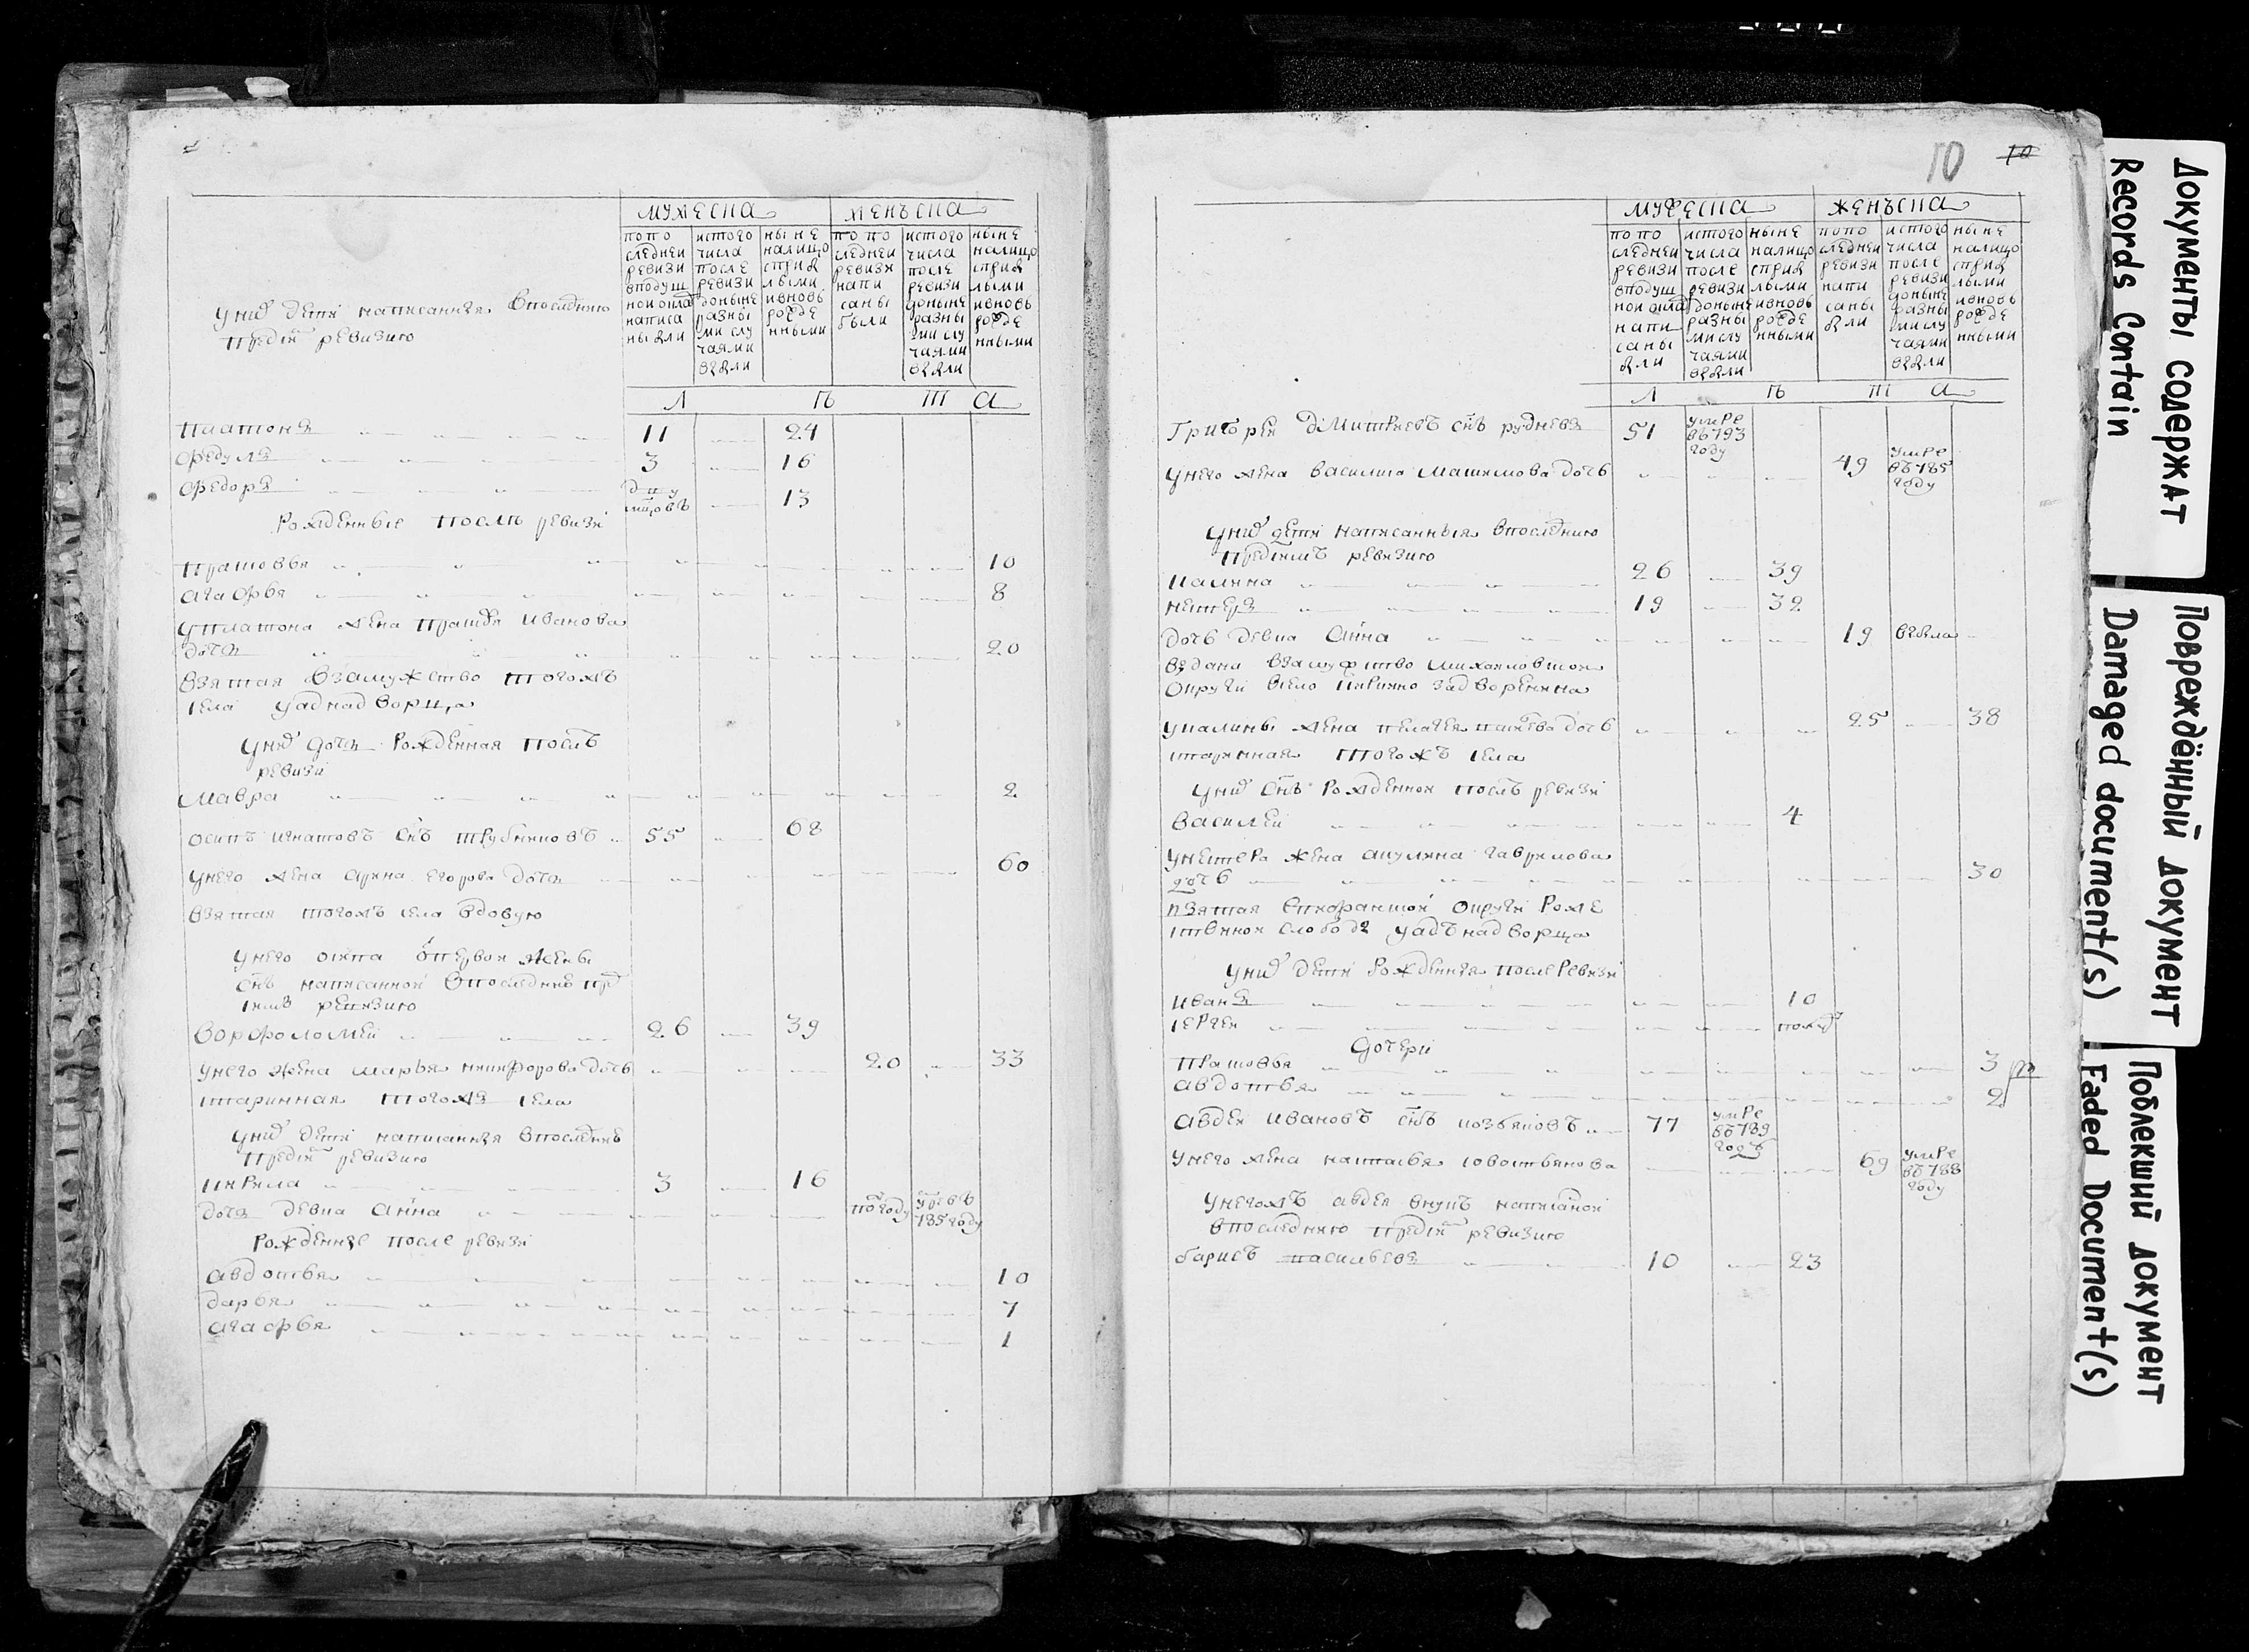 мужеска
женъска
попо следнеи ревизи вподуш нои оклад написа ны бли
истого числа после ревизи доныне разны ми слу чаями выбли
ны не налицо стриб лыми ивновь рожде нными
по по следнеи ревизи напи саны были
истого числа после ревизи доныне разны ми слу чаями выбли
ныне налицо стриб лыми ивновь рожде нными
л ѣ т а
у них дети написанныя впоследнюю
пред сим ревизию
платонъ 11 24
федулъ 3 16
федоръ 13
рожденные послѣ ревизи
прасковья 10
агафья 8
у платона жена прасковья иванова
дочь 20
взятая взамужство тогожъ
села уаднадворца
у них дочь рожденная послѣ
ревизи
мавра 2
осипъ игнатовъ снъ трубниковъ 55 68
у него жена арина егорова дочь 60
взятая тогожъ села вдовую
у него осипа от первои жены
снъ написанной впоследнюю пред
симъ ревизию
ворфоломей 26 39
у него жена марья никифорова дочь 20 33
старинная тогожъ села
у них дети написанныя впоследнюю
пред сим ревизию
кирила 3 16
дочь девка анна по году 785 году
рожденные после ревизи
авдотья 10
дарья 7
агафья 1
10
10
мужеска
женъска
попо следнеи ревизи вподуш нои оклад напи саны бли
истого числа после ревизи доныне разны ми слу чаями выбли
ныне налицо стриб лыми ивновь рожде нными
попо следнеи ревизи напи саны бли
истого числа после ревизи доныне разны ми слу чаями выбли
ныне налицо стриб лыми ивновь рожде нными
л ѣ т а
григорей дмитриевъ снъ рудневъ 51 умре въ 793 году
у него жена василиса дочь 49 умре въ 785 году
у них дети написанныя впоследнюю
пред симъ ревизию
калина 26 39
нестеръ 19 32
дочь девка анна 19 выбла
выдана взамужство михаиловской
округи в село
у калины жена пелагея дочь 25 38
старинная тогожъ села
у них снъ рожденной послѣ ревизи
василей 4
у нестера жена акулина гаврилова
дочь 30
взятая епифанской округи роже
ственной слободы уадънадворца
у них дети рожденныя после ревизи
иванъ 10
сергей полгод
дочери
прасковья 3
авдотья 2
авдей ивановъ снъ козьяковъ 77 умре въ 789 годъ
у него жена наталья 69 умре въ 788 году
у негожъ авдея внукъ написаной
впоследнюю пред сим ревизию
барисъ васильевъ 10 23
Документы содержат
Records Contain
Повреждённый документ
Damaged document(s)
Поблекший документ
Faded Document(s)